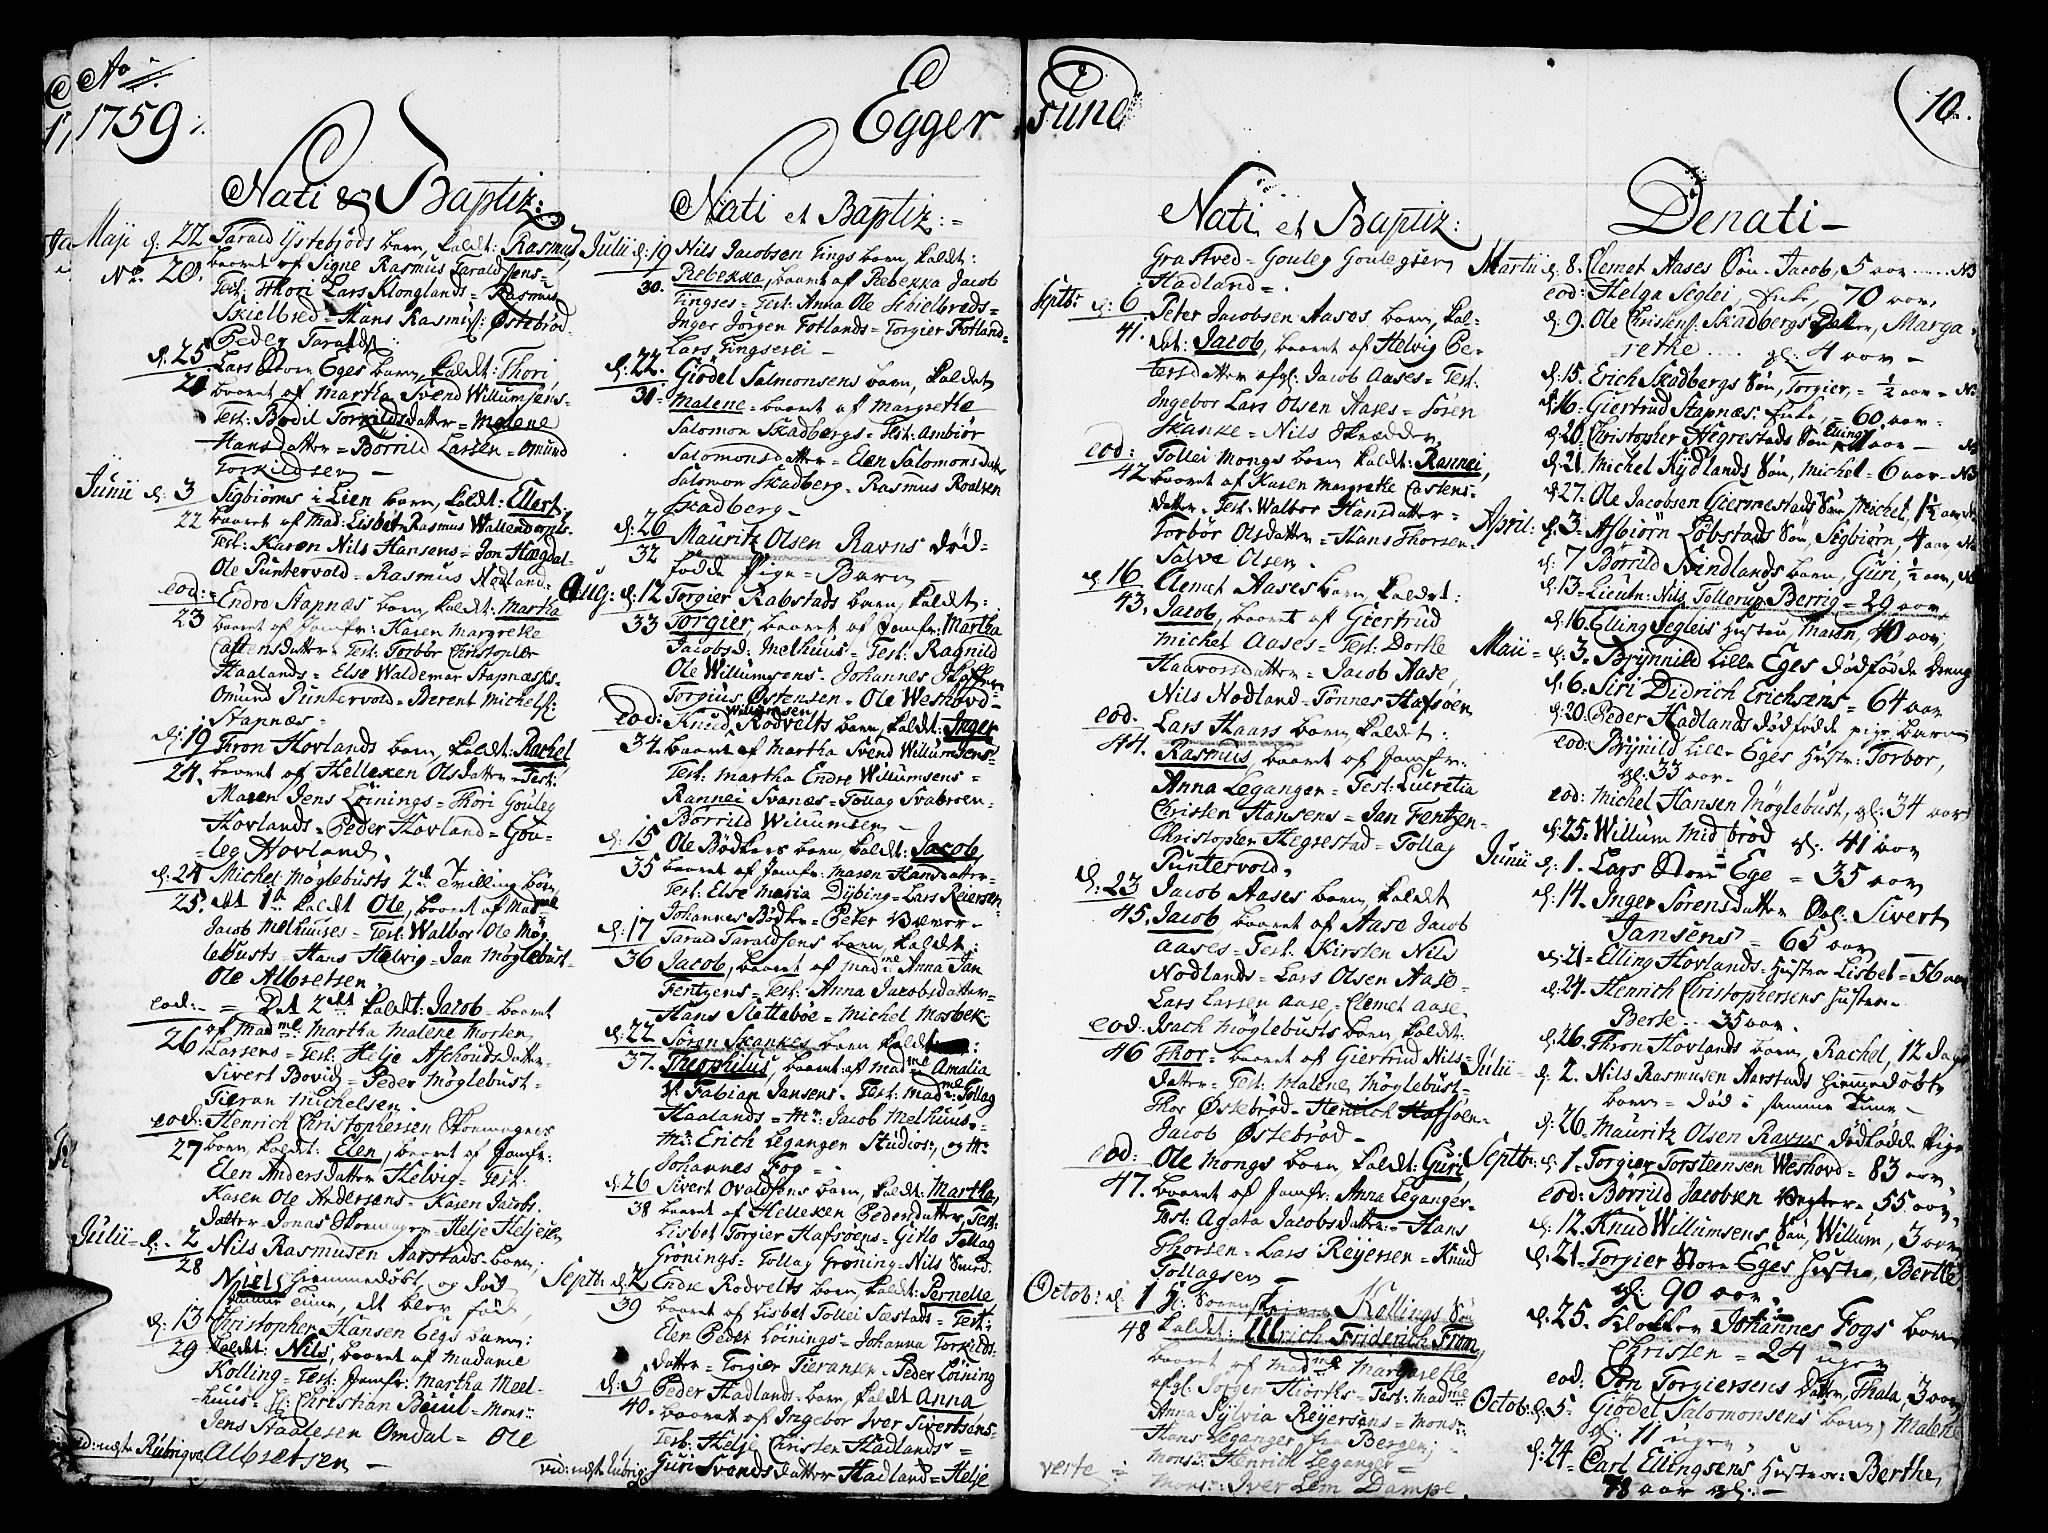 Ao
1759
Egger
sund
10.
Nati & Baptiz:
Maji d: 22 Tarald Ystebrøds barn, kaldt: Rasmus
No. 20. baaret af Signe Rasmus Taraldsens=
Test: Thori Lars Klonglands= Rasmus
Skielbred= Hans Rasmus: Østebrød
Peder Taralds:
d: 25 Lars Store Eges barn, kaldt: Thori
21 baaret af Martha Svend Willumsens=
Test: Bodil Torkildsdatter= Malene
Hansdatter= Børrild Larsen= Omund
Torkildsen
Junii d: 3 Sigbiørns i Lien barn, kaldt: Ellert,
22 baaret af Mad: Lisbet Rasmus
Test: Karen Nils Hansens= Jon Hægdal-
Ole Puntervold= Rasmus Nodland=
eod: Endre Stapnæs barn, kaldt: Martha
23 baaret af Jomfr: Karen Margrete
Castensdatter= Test: Torbør Christopher
Haalands= Else Waldemar Stapnæss-
Omund Puntervold= Berent Michels:
Stapnæs=
d: 19 Thron Hovlands barn, kaldt: Rachel
24. baaret af Helleken Olsdatter= Test:
Maren Jens Løinings= Thori Gouleg
Hovlands= Peder Hovland= Gou-
leg Hovland.
d: 24 Michel Møglebusts 2de Tvilling børn,
25. det 1te kaldt Ole, baaret af Madme
Jacob Melhuuses= Test: Walbor Ole Møg
lebusts= Hans Helvig= Jan Møglebust=
Ole Albretsen.
eod: = Det 2det kaldt: Jacob= baaret
26 af Madme: Martha Malene Morten
Larsens= Test: Helje Aschoudsdatter=
Sivert Bovid= Peder Møglebust=
Tieran Michelsen.
eod: Henrich Christophersen Skomagers
27 barn, kaldt: Elen, baaret af Jomfr:
Elen Andersdatter Helvig= Test:
Karen Ole Andersens= Karen Jacobs.
datter= Jonas Skomager= Helje Heljesen
Julii d: 2 Nils Rasmusen Aarstads barn,
28 Niels, hiemmedøbt, og død
samme Time, det blev fød.
d: 13 Christopher Hansen Eegs barn:
29 kaldt: Nils, baaret af Madame
Kolling= Test: Jomfr: Martha Meel-
huus= Christian = Mons:
Jens Stadlesen Omdal= Ole
vid: næste Rubriqve Albretsen=
Nati et Baptiz:=
Julii d: 19 Nils Jacobsen Tings barn, kaldt:
30. Rebekka, baaret af Rebekka Jacob
Tingses= Test: Anna Ole Skielbreds=
Inger Jørgen Fotlands= Torgier Fotland=
Lars Tingserei
d: 22. Giødel Salmonsens barn, kaldet
31. Malene= baaret af Margrethe
Salomon Skadbergs= Test: Ambiør
Salomonsdatter= Elen Salomonsdatter
Salomon Skadberg= Rasmus Roalsen
Skadberg
d: 26 Mauritz Olsen Ravns død=
32 fødde Pige= Barn
Aug: d: 12 Torgier Rabstads barn, kaldt:
33 Torgier, baaret af Jomfr: Martha
Jacobsd: Melhuus= Test: Ragnild
Ole Willumsens= Johannes
Torgius Østensen= Ole Weshovd
eod: Knud Willumsen Rodvelts barn, kaldt: Inger
34. baaret af Martha Svend Willumsens=
Test: Martha Endre Willumsens=
Rannei Svanæs= Tollag Svabroen=
Børrild Willumsen
d: 15 Ole Bødkers barn, kaldt: Jacob,
35 baaret af Jomfr: Maren Hansdatter=
Test: Else Maria Dybing= Lars Reiersen=
Johannes Bødker= Peter
d: 17 Tarald Taraldsens barn, kaldt:
36 Jacob, baaret af Madme: Anna Jan
Fentzens= Test: Anna Jacobsdatter=
Hans Slettebøe= Michel Mosbek
d: 22 Søren Skankes barn kaldt:
37. Theophilus, baaret af Madme Amalia
Fabian Jansens= Test: Madme: Tollag
Haalands= Mr: Jacob Melhuus=
Mr: Erich Leganger Studios:, og Mr
Johannes Fog=
d: 26 Sivert Ovaldsens barn, kaldt: Martha,
38 baaret af Helleken Pedersdatter, Test:
Lisbet Torgier Hafsøens= Girto Tollag
Grønings= Tollag Grøning= Nils Smed.
Septbr d: 2 Endre Rodvelts barn, kaldt: Pernelle
39 baaret af Lisbet Tollei Sæstads= Test:
Elen Peder Løinings= Johanna Torkilds.
datter= Torgier Tieransen= Peder Løining
d: 5 Peder Hadlands= barn, kaldt Anna
40. baaret af Ingebor Iver Sivertsens=
Test: Helje Christen Hadlands=
vid: næste Rubriq: Guri Svends datter Hadland= Helje
Nati et Baptiz:
Grastved= Gouleg Goulegsen
Hadland=
Septbr d: 6 Peter Jacobsen Aases barn, kal-
41. det: Jacob, baaret af Helvig Pe-
tersdatter afgl: Jacob Aases= Test:
Ingebor Lars Olsen Aases= Søren
Skanke= Nils Skrædder.
eod: Tollei Mongs barn, kaldt: Rannei,
42 baaret af Karen Margrete Castens-
datter= Test: Walbor Hansdatter=
Torbør Olsdatter= Hans Thorsen=
Salve Olsen.
d: 16 Clemet Aases barn, kaldet:
43. Jacob, baaret af Giertrud
Michel Aases= Test: Dorte
Haavorsdatter= Jacob Aase,
Nils Nodland= Tønnes Hafsøen
eod. Lars Haars barn, kaldt:
44. Rasmus, baaret af Jomfr:
Anna Leganger= Test: Lucretia
Christen Hansens= Jan Fentzen=
Christopher Hegrestad= Tollag
Puntervold.
d: 23 Jacob Aases barn, kaldt
45. Jacob, baaret af Aase Jacob
Aases= Test: Kirsten Nils
Nodlands= Lars Olsen Aase=
Lars Larsen Aase,= Clemet Aase.
eod: Isach Møglebusts barn, kaldt:
46 Thor= baaret af Giertrud Nils=
datter= Test: Malene Møglebust=
Thor Østebrød= Henrich Hafsøen=
Jacob Østebrød=
eod: Ole Mongs barn, kaldt: Guri,
47. baaret af Jomfr: Anna Leganger.
Test: Agata Jacobsdatter= Hans
Thorsen= Lars Reyersen= Knud
Tollagsen
Octob: d: 1 Sorenskriver Kollings Søn
48 kaldt: Ulrich Friderich From,
baaret af Madme Margrethe
afgl: Jørgen Hiorths= Test: Madme
Anna Sylvia Reyersens= Monsr:
Hans Leganger fra Bergen;
Monsr: Henrich Leganger=
verte Monsr: Iver Lem Dampe.
Denati
Martii d: 8. Clemet Aases Søn= Jacob, 5 aar
eod: Helga Seglei, Enke, 70 aar,
d: 9. Ole Christens: Skadbergs Datter, Marga
rethe gl: 4 aar
d: 15. Erich Skadbergs Søn, Torgier, = ½ aar
d: 16. Giertrud Stapnæs. Enke, = 60. aar.
d: 20. Christopher Hegrestads Søn Elling, 1 aar
d: 21. Michel Kydlands Søn, Michel= 6 aar
d: 27. Ole Jacobsen Giermestads Søn Michel, 1½ aar
April: d: 3. Asbiørn Løbstads Søn, Sigbiørn, 4 aar
d: 7 Børrild Svindlands barn, Guri, ½ aar,
d: 13. Lieutn: Nils Tollerup Berrig= 29 aar
d: 16. Elling Segleis Hustru, Maren, 40 aar,
Maii= d: 3. Brynnild Lille Eges dødfødde dreng
d: 6. Siri Didrich Erichsens= 64 aar
d: 20. Peder Hadlands dødfødde pige barn
eod: Brynild Lille Eges Hustr: Torbor,
gl: 33 aar.
eod: Michel Hansen Møglebust, gl: 34 aar
d: 25. Willum Midbrød gl: 41 aar
Junii d: 1. Lars Store Ege = 35 aar
d: 14. Inger Sørensdatter Sal: Sivert
Jansens = 65 aar
d: 21= Elling Hovlands= Hustru Lisbet= 56 aar
d: 24. Henrich Christophersens Hustru=
Berte 35 aar.
d: 26. Thron Hovlands barn, Rachel, 12 dage
Julii d: 2. Nils Rasmusen Aarstads hiemmedøbte
barn= død i samme Time
d: 26. Mauritz Olsen Ravns dødfødde Pige
Septbr: d: 1. Torgier Torsteensen Weshovd= 83 aar,
eod: Børrild Jacobsen = 55. aar,
d: 12. Knud Willumsens Søn, Willum, 3 aar,
d: 21. Torgier Store Eges Hustru, Berthe
gl: 90 aar.
d: 25. Klokker Johannes Fogs barn
Christen = 24 uger
eod: Torgiersens datter, Thala, 3 aar
Octob: d: 5. Giødel Salomonsens barn, Malene
gl: 11 uger
d: 24= Carl Ellingsens Hustroe: Berthe,
78 aar gl: